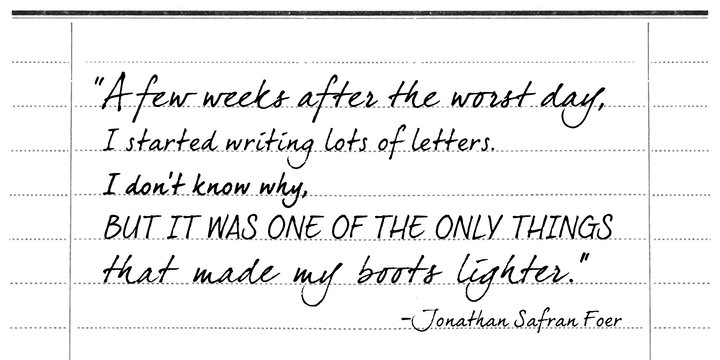 "A few weeks after the worst day,
I started writing lots of letters.
I don't know why,
BUT IT WAS ONE OF THE ONLY THINGS
that made my boots lighter."
-Jonathan Safran Foer